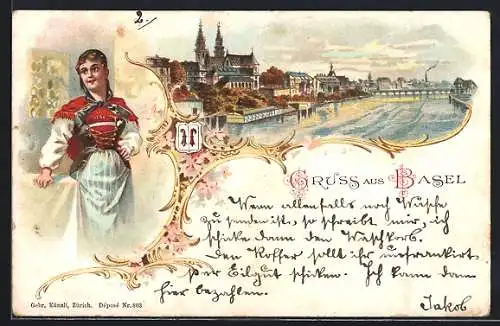 2.
GRUSS AUS BASEL
Wenn allenfalls noch Wäsche
zu senden ist, so schreibt mir, ich
schicke dann den Waschkorb.
Den Koffer sollt ihr unfrankiert
per Eilgut schicken. Ich kann dann
hier bezahlen.
Jakob
Gebr. Künzli, Zürich. Déposé Nr. 803